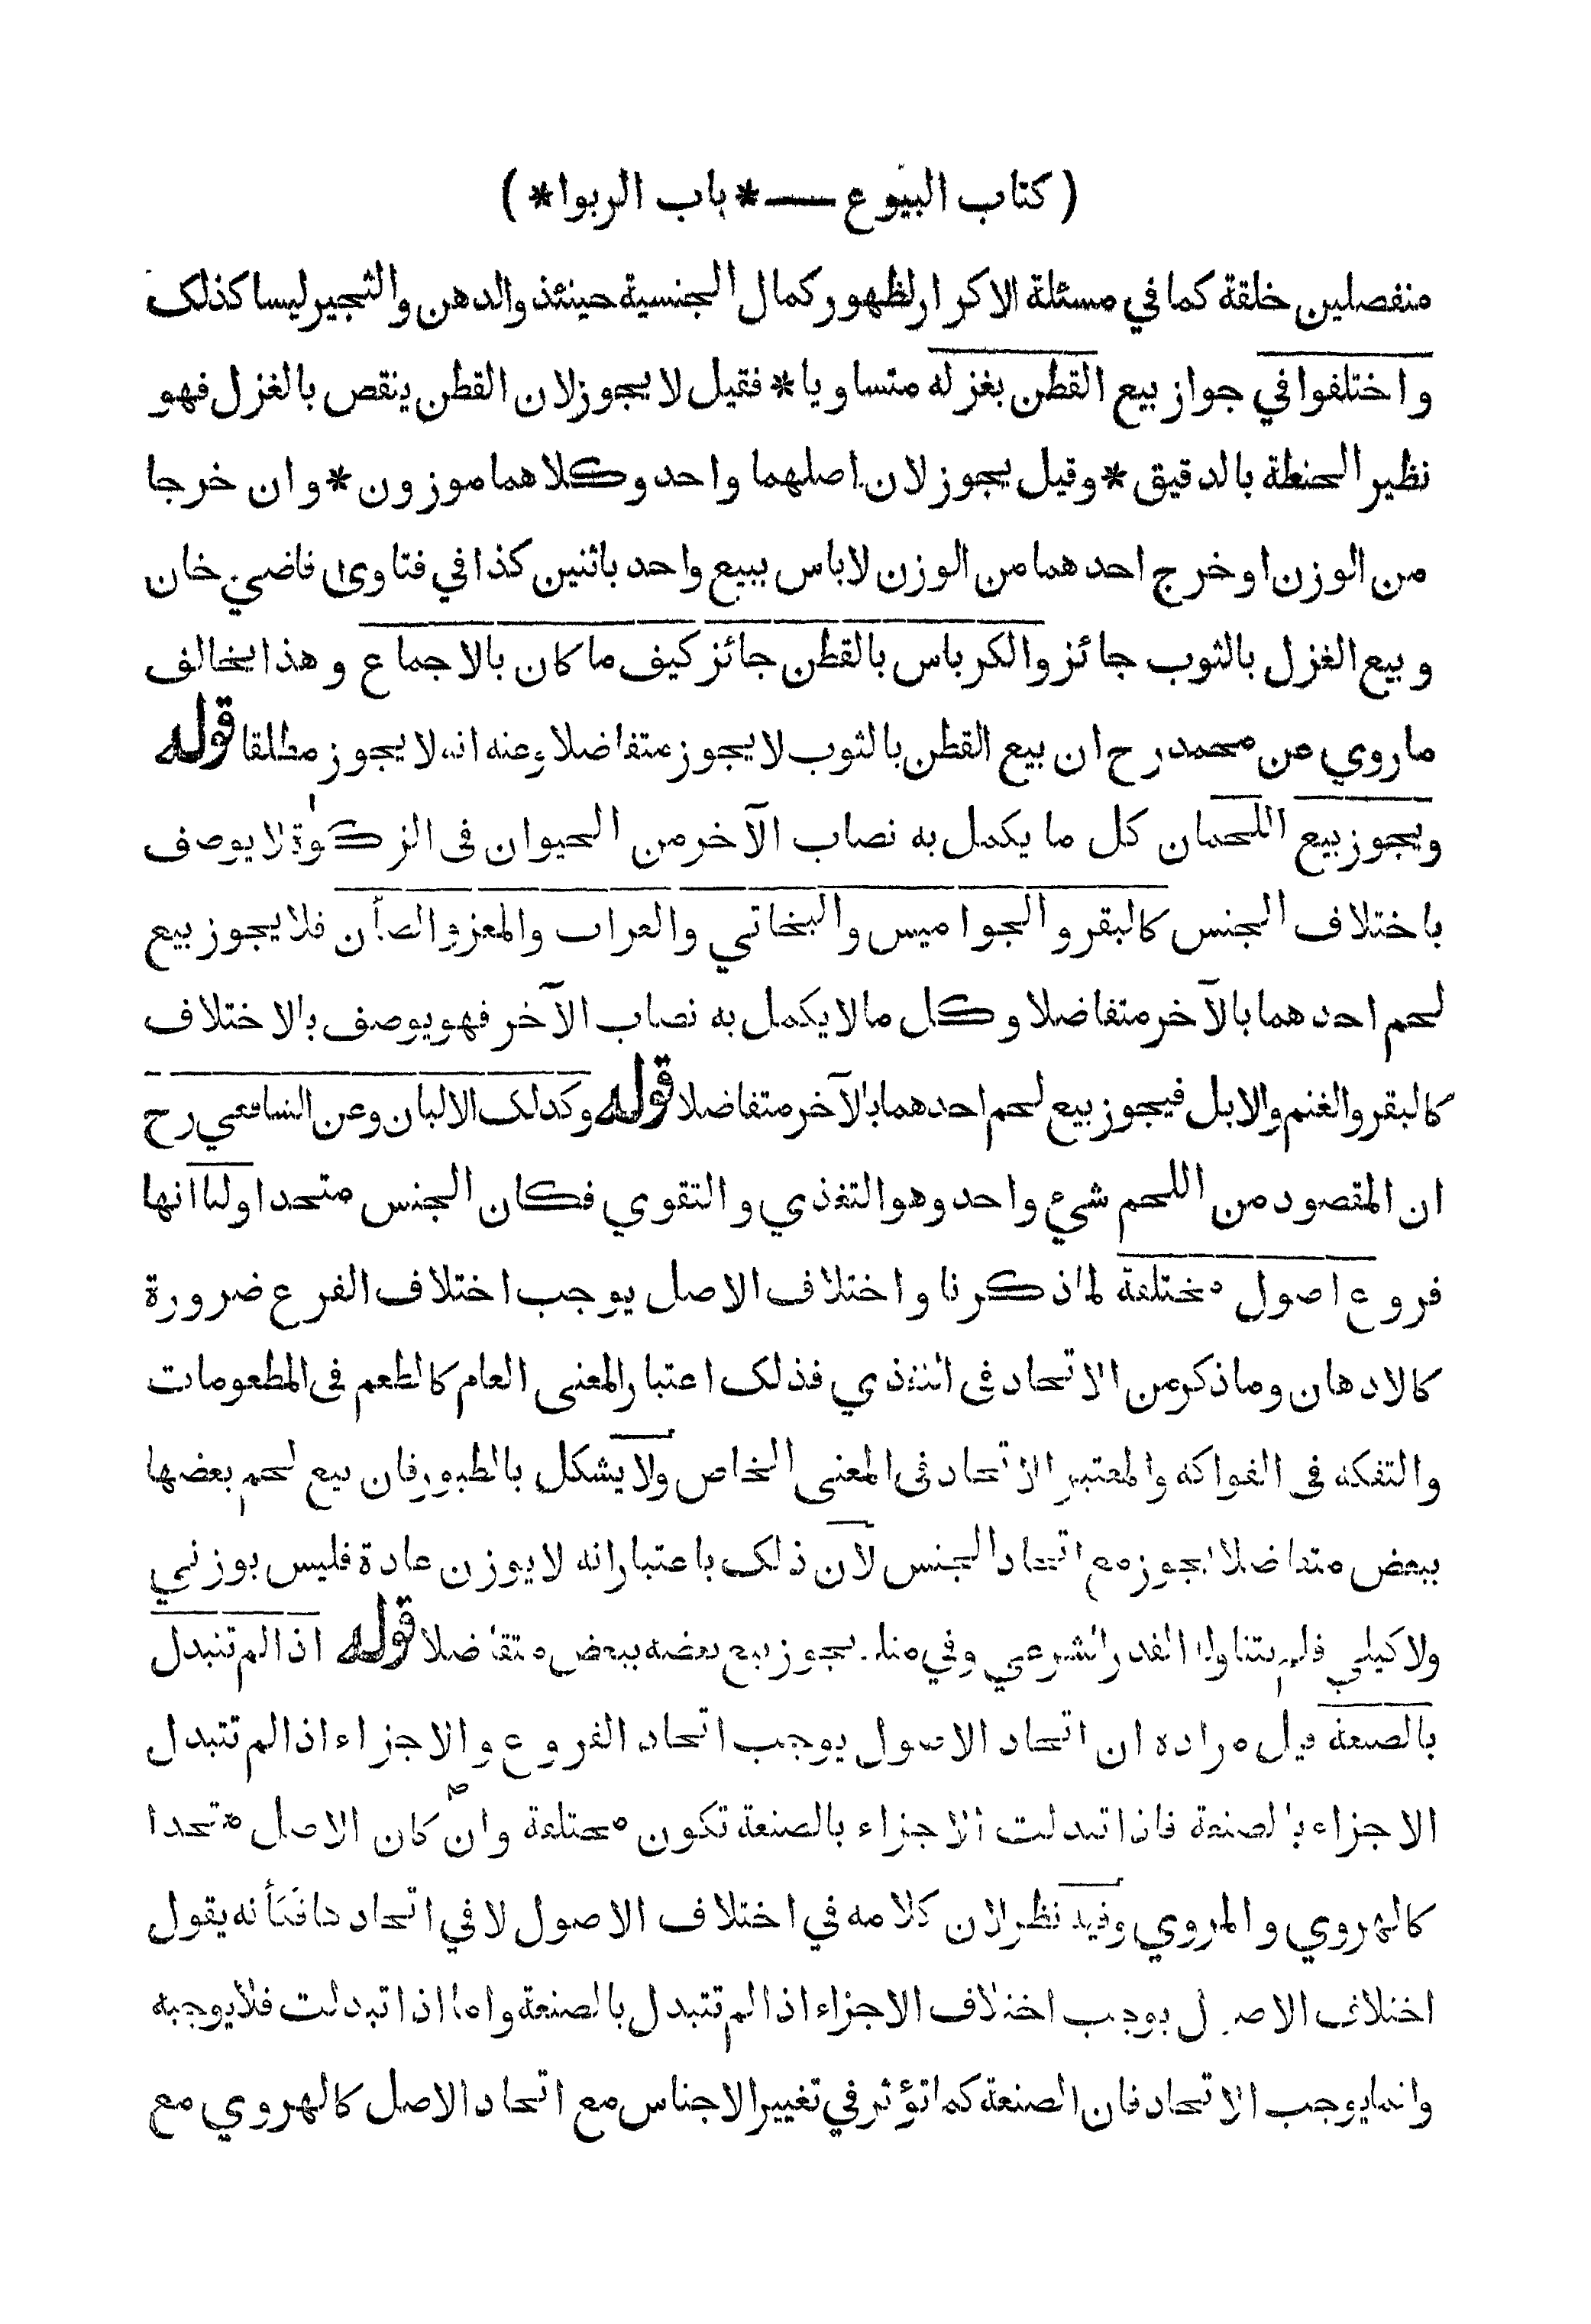 ( كتاب البيوع —— * باب الربوا * )
منفصلين خلقة كما في مسئلة الاكرار لظهور كمال الجنسية حينئذ والدهن والثجير ليسا كذلك
واختلفوا في جواز بيع القطن بغزله متساويا * فقيل لا يجوز لان القطن ينقص بالغزل فهو
نظير الحنطة بالدقيق * وقيل يجوز لان اصلهما واحد وكلاهما موزون * وان خرجا
من الوزن او خرج احدهما من الوزن لاباس ببيع واحد باثنين كذا في فتاوى قاضي خان
وبيع الغزل بالثوب جائز والكرباس بالقطن جائز كيف ما كان بالاجماع وهذا يخالف
ما روي عن محمد رح ان بيع القطن بالثوب لا يجوز متفاضلا وعنه انه لا يجوز مطلقا قوله
ويجوز بيع اللحمان كل ما يكمل به نصاب الآخر من الحيوان فى الزكوٰة لا يوصف
باختلاف الجنس كالبقر والجواميس والبخاتي والعراب والمعز والضأن فلا يجوز بيع
لحم احدهما بالآخر متفاضلا وكل مالا يكمل به نصاب الآخر فهو يوصف بالاختلاف
كالبقر والغنم والابل فيجوز بيع لحم احدهما بالآخر متفاضلا قوله وكذلك الالبان وعن الشافعي رح
ان المقصود من اللحم شيء واحد وهو التغذي والتقوي فكان الجنس متحدا ولنا انها
فروع اصول مختلفة لما ذكرنا واختلاف الاصل يوجب اختلاف الفرع ضرورة
كالادهان وما ذكر من الاتحاد فى التغذي فذلك اعتبار المعنى العام كالطعم فى المطعومات
والتفكه فى الفواكه والمعتبر الاتحاد فى المعنى الخاص ولا يشكل بالطيور فان بيع لحم بعضها
ببعض متفاضلا يجوز مع اتحاد الجنس لان ذلك باعتبار انه لا يوزن عادة فليس بوزني
ولا كيلي فلم يتناوله القدر الشرعي وفي مثله يجوز بيع بعضه ببعض متفاضلا قوله اذا لم تتبدل
بالصنعة قيل مراده ان اتحاد الاصول يوجب اتحاد الفروع والاجزاء اذا لم تتبدل
الاجزاء بالصنعة فاذا تبدلت الاجزاء بالصنعة تكون مختلفة وان كان الاصل متحدا
كالهروي والمروي وفيه نظر لان كلامه في اختلاف الاصول لا في اتحادها فكأنه يقول
اختلاف الاصول يوجب اختلاف الاجزاء اذا لم تتبدل بالصنعة واما اذا تبدلت فلا يوجبه
وانما يوجب الاتحاد فان الصنعة كما تؤثر في تغيير الاجناس مع اتحاد الاصل كالهروي مع